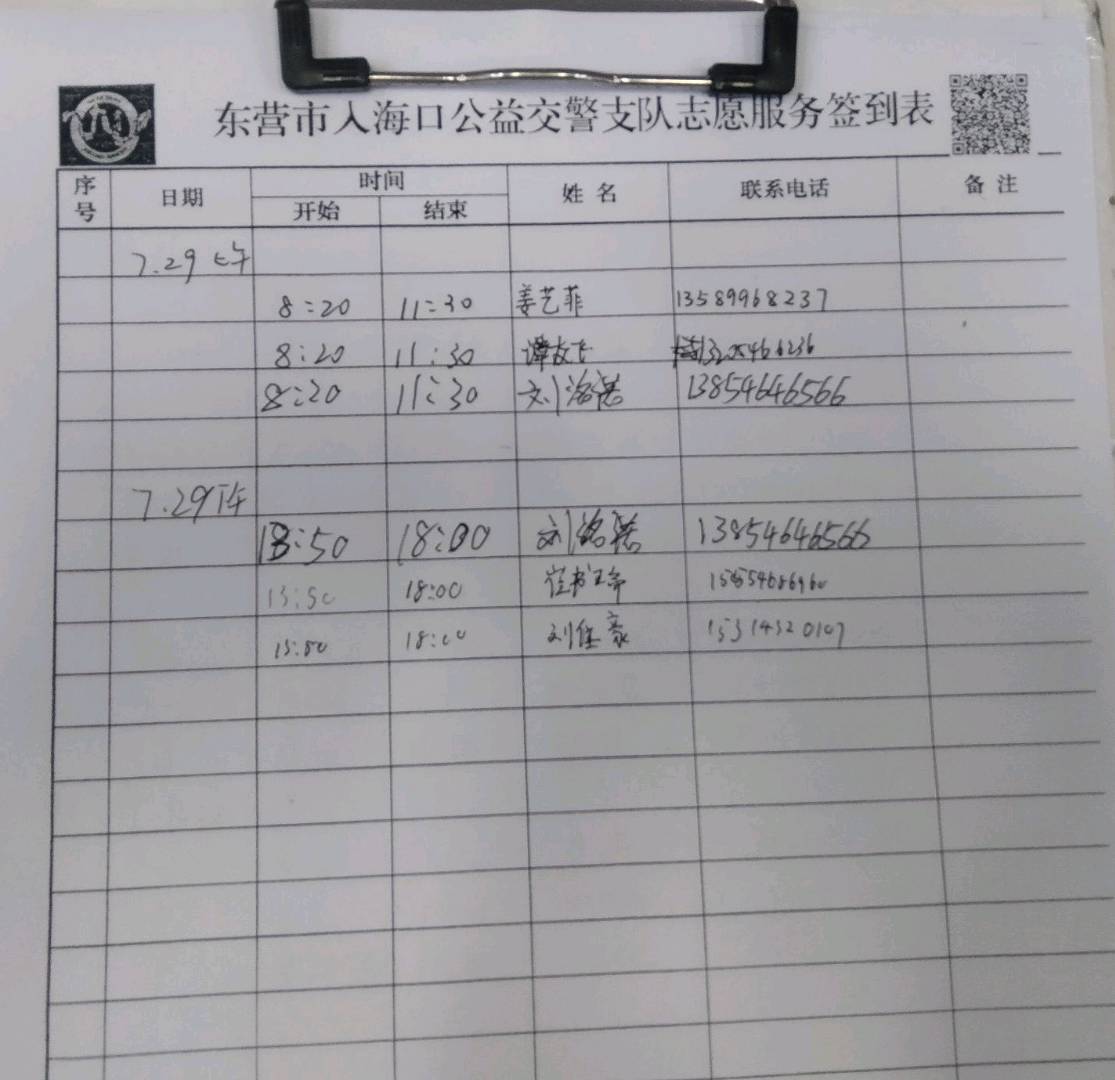 东营市入海口公益交警支队志愿服务签到表
序号 日期 时间 姓名 联系电话 备注
开始 结束
7.29 上午
8:20 11:30 姜艺菲 13589968237
8:20 11:30
8:20 11:30 刘洺諾 13854646566
7.29下午
13:50 18:00 刘洺諾 13854646566
13:50 18:00
18:00 刘佳豪